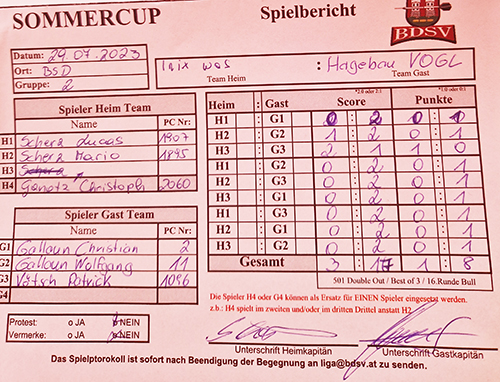 SOMMERCUP Spielbericht BDSV
Datum: 29.07.2023
Ort: BSD
Gruppe: 2
Team Heim : Hagebau VOGL
Team Gast
Spieler Heim Team
Name PC Nr:
H1 Scherz Lucas 1907
H2 Scherz Mario 1895
H3
H4 Christoph 2060
Spieler Gast Team
Name PC Nr:
G1 Gallaun Christian 2
G2 Gallaun Wolfgang 11
G3 Patrick 1096
G4
Protest: o JA NEIN
Vermerke: o JA NEIN
*2:0 oder 2:1 *1:0 oder 0:1
Heim : Gast Score Punkte
H1 : G1 0 : 2 0 : 1
H2 : G2 1 : 2 0 : 1
H3 : G3 2 : 1 1 : 0
H1 : G2 0 : 2 0 : 1
H2 : G3 0 : 2 0 : 1
H3 : G1 0 : 2 0 : 1
H1 : G3 0 : 2 0 : 1
H2 : G1 0 : 2 0 : 1
H3 : G2 0 : 2 0 : 1
Gesamt 3 : 17 1 : 8
501 Double Out / Best of 3 / 16.Runde Bull
Die Spieler H4 oder G4 können als Ersatz für EINEN Spieler eingesetzt werden.
z.b.: H4 spielt im zweiten und/oder im dritten Drittel anstatt H2
Unterschrift Heimkapitän Unterschrift Gastkapitän
Das Spielptotokoll ist sofort nach Beendigung der Begegnung an liga@bdsv.at zu senden.